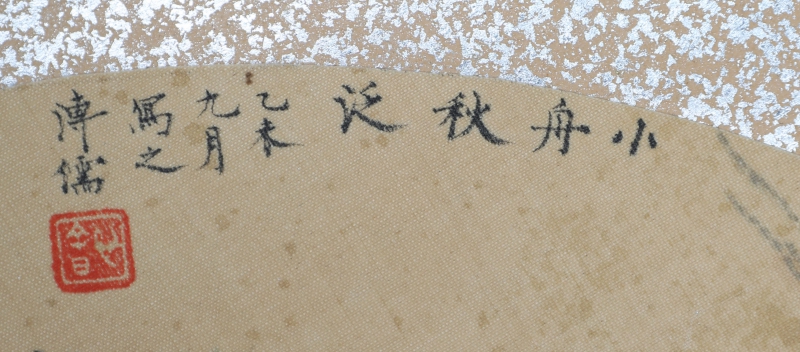 小舟秋泛
乙未
九月
寫之
溥儒